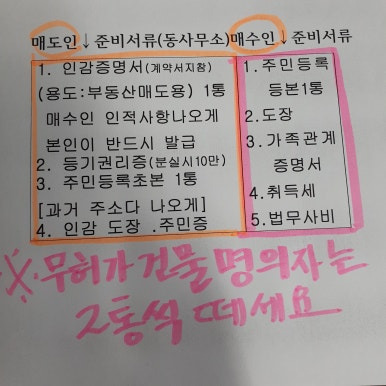 매도인↓준비서류(동사무소)매수인↓준비서류
1. 인감증명서(계약서지참)
(용도:부동산매도용) 1통
매수인 인적사항나오게
본인이 반드시 발급
2. 등기권리증(분실시10만)
3. 주민등록초본 1통
[과거 주소다 나오게]
4. 인감 도장 .주민증
1.주민등록
등본1통
2.도장
3.가족관계
증명서
4.취득세
5.법무사비
※.무허가 건물 명의자는
2통씩 떼세요